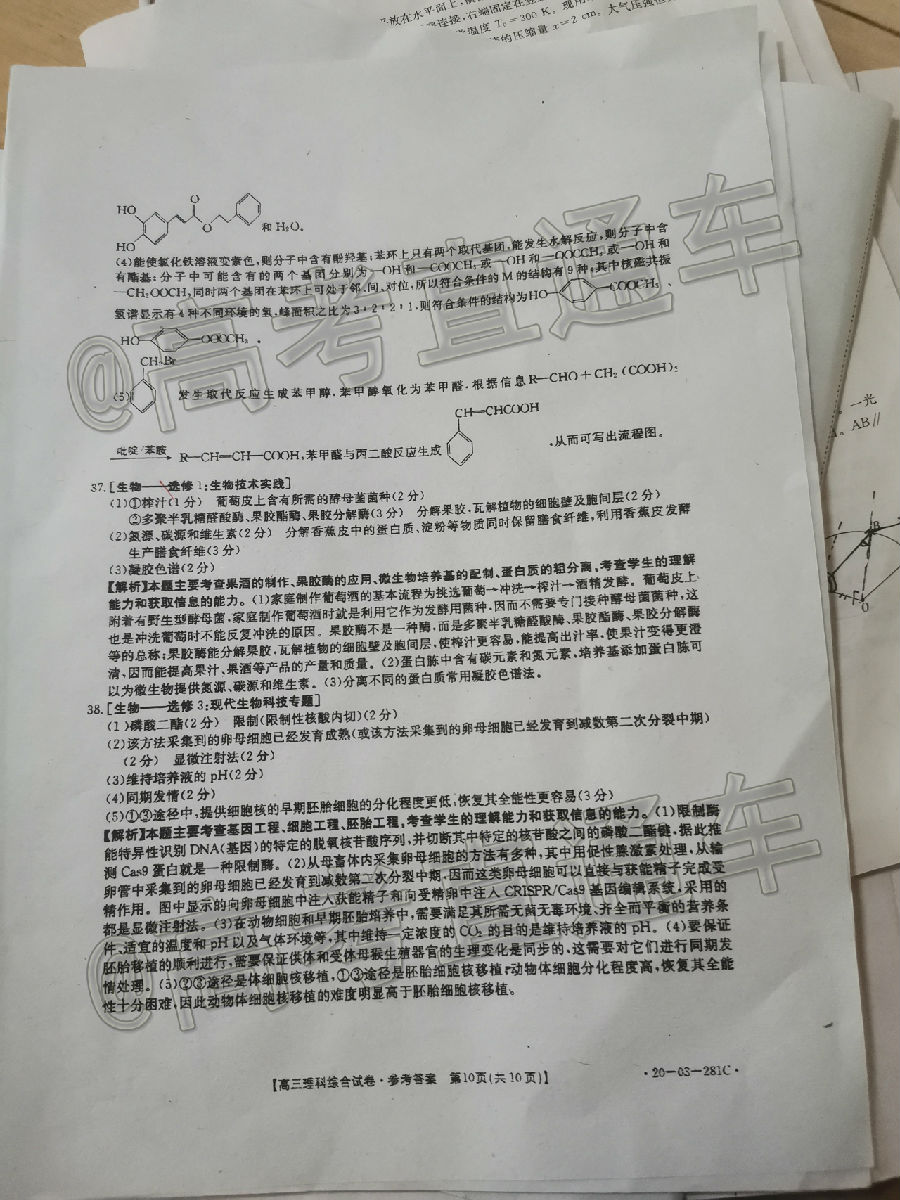 放在水平面上
连接,右端固定在
温度 T₀=300 K
的压缩量 x=2 cm,大气压强
HO
O
O
HO
和 H₂O。
(4)能使氯化铁溶液变紫色,则分子中含有酚羟基;苯环上只有两个取代基团,能发生水解反应,则分子中含
有酯基;分子中可能含有的两个基团分别为—OH和—COOCH₃或—OH和—OOCCH₃或—OH和
—CH₂OOCH,同时两个基团在苯环上可处于邻、间、对位,所以符合条件的M的结构有9种,其中核磁共振
氢谱显示有4种不同环境的氢,峰面积之比为3:2:2:1,则符合条件的结构为HO— —COOCH₃、
HO— —OOCCH₃。
CH₂Br
(5) 发生取代反应生成苯甲醇,苯甲醇氧化为苯甲醛,根据信息R—CHO+CH₂(COOH)₂
CH—CHCOOH
吡啶/苯胺 R—CH—CH—COOH,苯甲醛与丙二酸反应生成 ,从而可写出流程图。
37.[生物——选修1:生物技术实践]
(1)①榨汁(1分) 葡萄皮上含有所需的酵母菌菌种(2分)
②多聚半乳糖醛酸酶、果胶酯酶、果胶分解酶(3分) 分解果胶,瓦解植物的细胞壁及胞间层(2分)
(2)氮源、碳源和维生素(2分) 分解香蕉皮中的蛋白质、淀粉等物质同时保留膳食纤维,利用香蕉皮发酵
生产膳食纤维(3分)
(3)凝胶色谱(2分)
【解析】本题主要考查果酒的制作、果胶酶的应用、微生物培养基的配制、蛋白质的粗分离,考查学生的理解
能力和获取信息的能力。(1)家庭制作葡萄酒的基本流程为挑选葡萄→冲洗→榨汁→酒精发酵。葡萄皮上
附着有野生型酵母菌,家庭制作葡萄酒时就是利用它作为发酵用菌种,因而不需要专门接种酵母菌菌种,这
也是冲洗葡萄时不能反复冲洗的原因。果胶酶不是一种酶,而是多聚半乳糖醛酸酶、果胶酯酶、果胶分解酶
等的总称;果胶酶能分解果胶,瓦解植物的细胞壁及胞间层,使榨汁更容易,能提高出汁率,使果汁变得更澄
清,因而能提高果汁、果酒等产品的产量和质量。(2)蛋白胨中含有碳元素和氮元素,培养基添加蛋白胨可
以为微生物提供氮源、碳源和维生素。(3)分离不同的蛋白质常用凝胶色谱法。
38.[生物——选修3:现代生物科技专题]
(1)磷酸二酯(2分) 限制(限制性核酸内切)(2分)
(2)该方法采集到的卵母细胞已经发育成熟(或该方法采集到的卵母细胞已经发育到减数第二次分裂中期)
(2分) 显微注射法(2分)
(3)维持培养液的pH(2分)
(4)同期发情(2分)
(5)①③途径中,提供细胞核的早期胚胎细胞的分化程度更低,恢复其全能性更容易(3分)
【解析】本题主要考查基因工程、细胞工程、胚胎工程,考查学生的理解能力和获取信息的能力。(1)限制酶
能特异性识别DNA(基因)的特定的脱氧核苷酸序列,并切断其中特定的核苷酸之间的磷酸二酯键,据此推
测Cas9蛋白就是一种限制酶。(2)从母畜体内采集卵母细胞的方法有多种,其中用促性腺激素处理,从输
卵管中采集到的卵母细胞已经发育到减数第二次分裂中期,因而这类卵母细胞可以直接与获能精子完成受
精作用。图中显示的向卵母细胞中注入获能精子和向受精卵中注入CRISPR/Cas9基因编辑系统,采用的
都是显微注射法。(3)在动物细胞和早期胚胎培养中,需要满足其所需无菌无毒环境、齐全而平衡的营养条
件、适宜的温度和pH以及气体环境等,其中维持一定浓度的CO₂的目的是维持培养液的pH。(4)要保证
胚胎移植的顺利进行,需要保证供体和受体母猴生殖器官的生理变化是同步的,这需要对它们进行同期发
情处理。(5)②③途径是体细胞核移植,①③途径是胚胎细胞核移植,动物体细胞分化程度高,恢复其全能
性十分困难,因此动物体细胞核移植的难度明显高于胚胎细胞核移植。
【高三理科综合试卷·参考答案 第10页(共10页)】
·20-03-281C·
@高考直通车
@高考直通车
一光
AB//
B
F
O